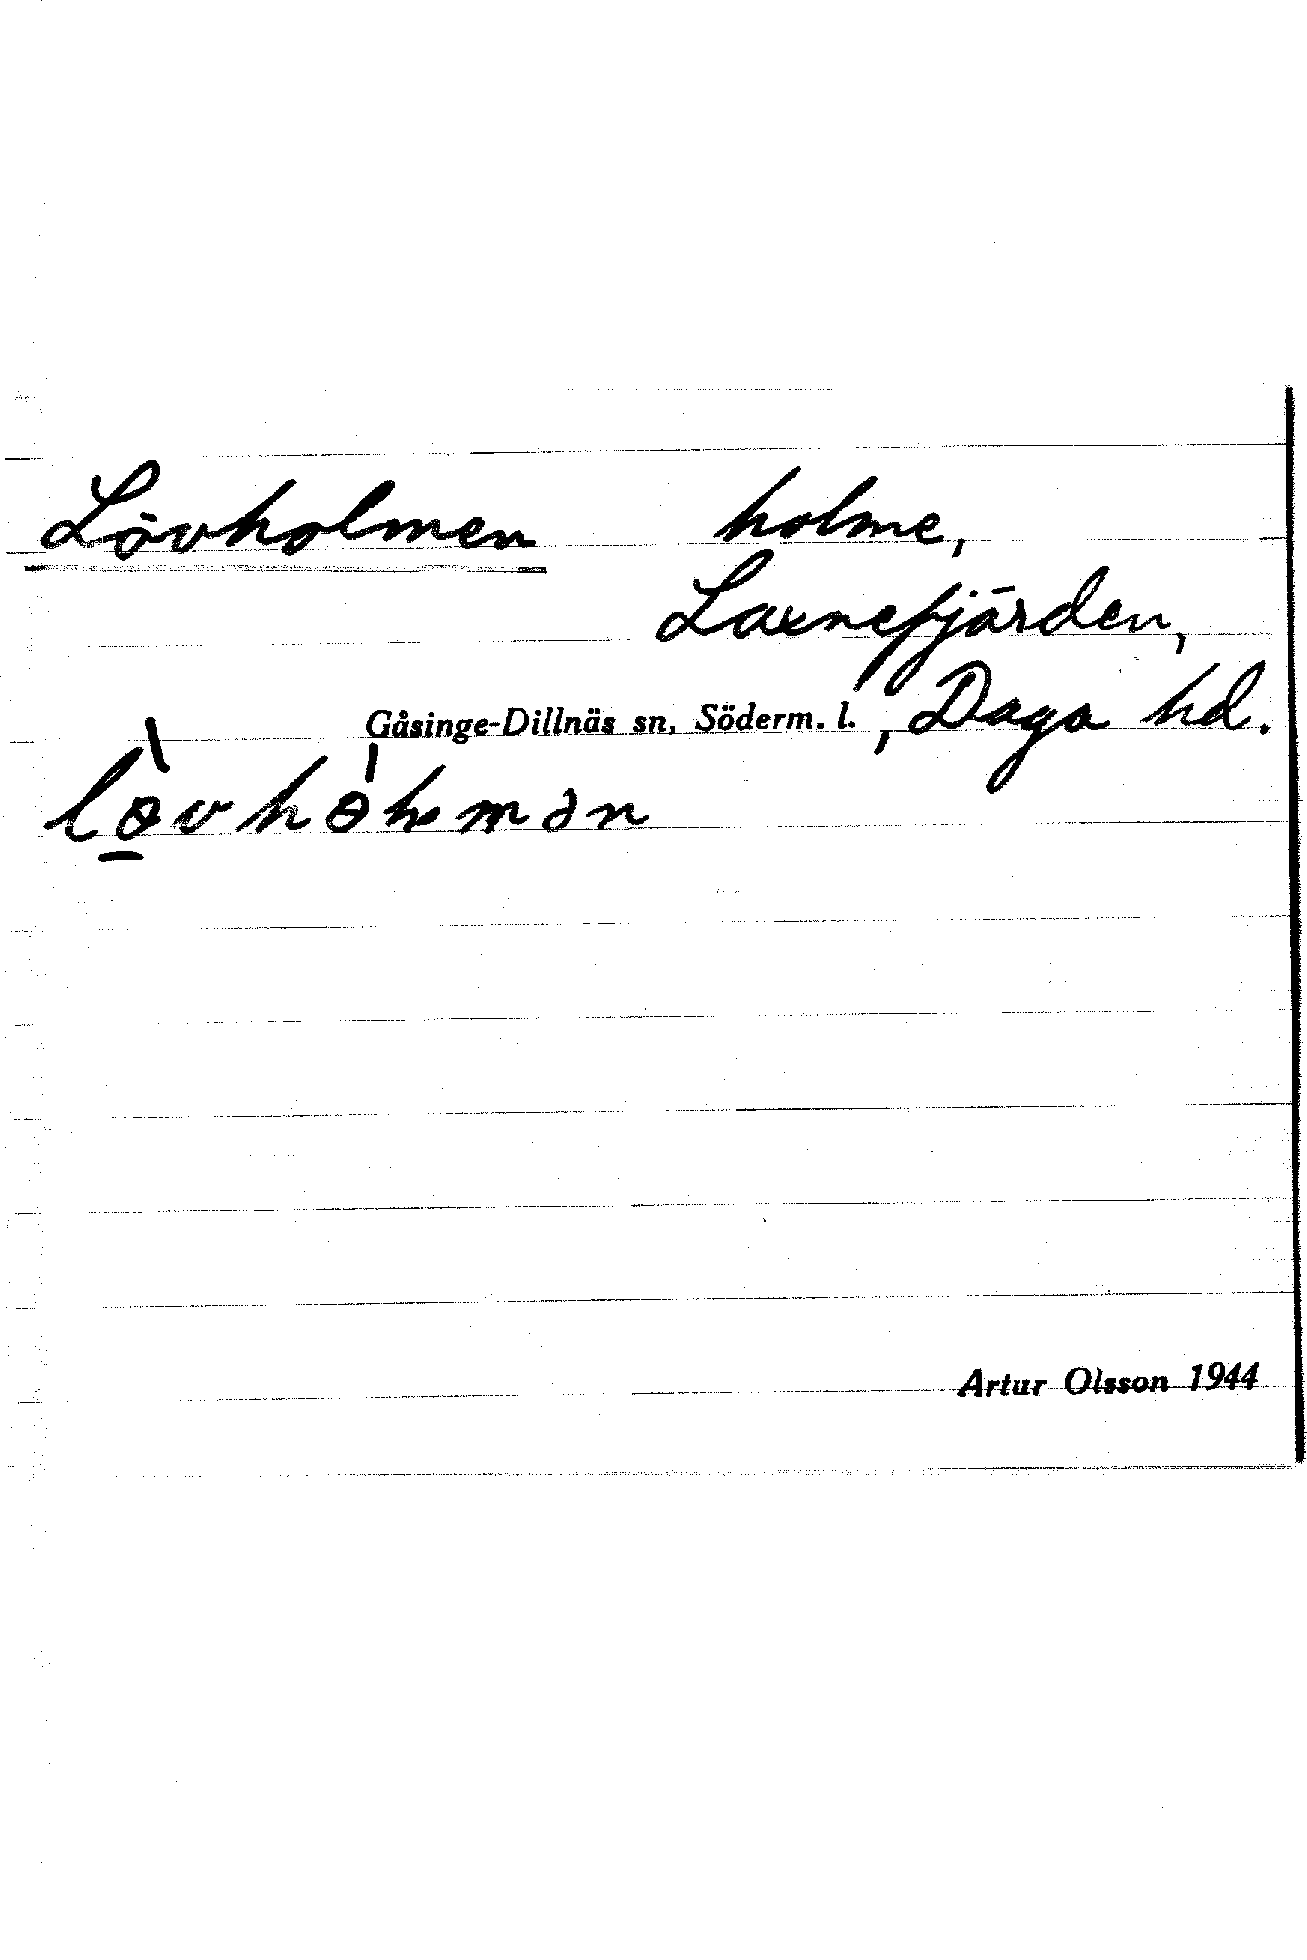 Lövholmen holme,
Laxnefjärden,
Gåsinge-Dillnäs sn, Söderm. l., Daga hd.
Artur Olsson 1944